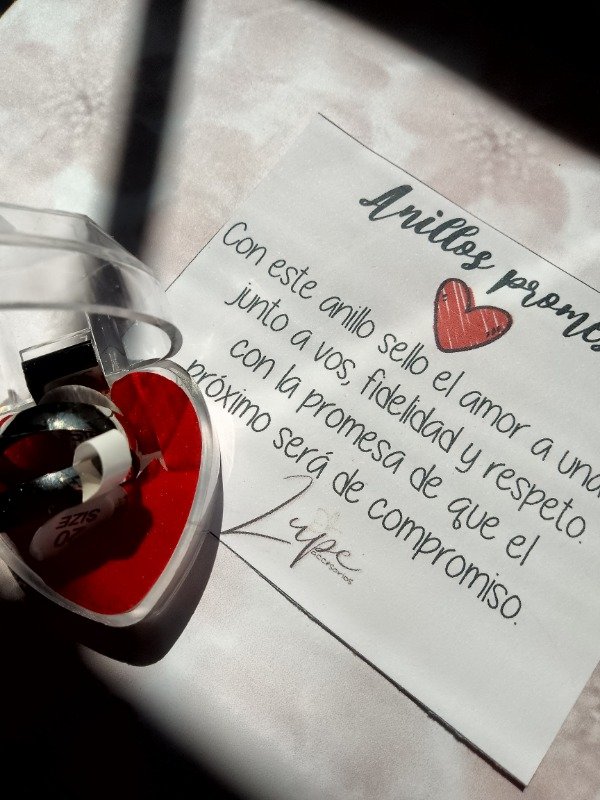 Anillos promes
Con este anillo sello el amor a una
junto a vos, fidelidad y respeto.
con la promesa de que el
próximo será de compromiso.
Lupe
accesorios
SIZE
20